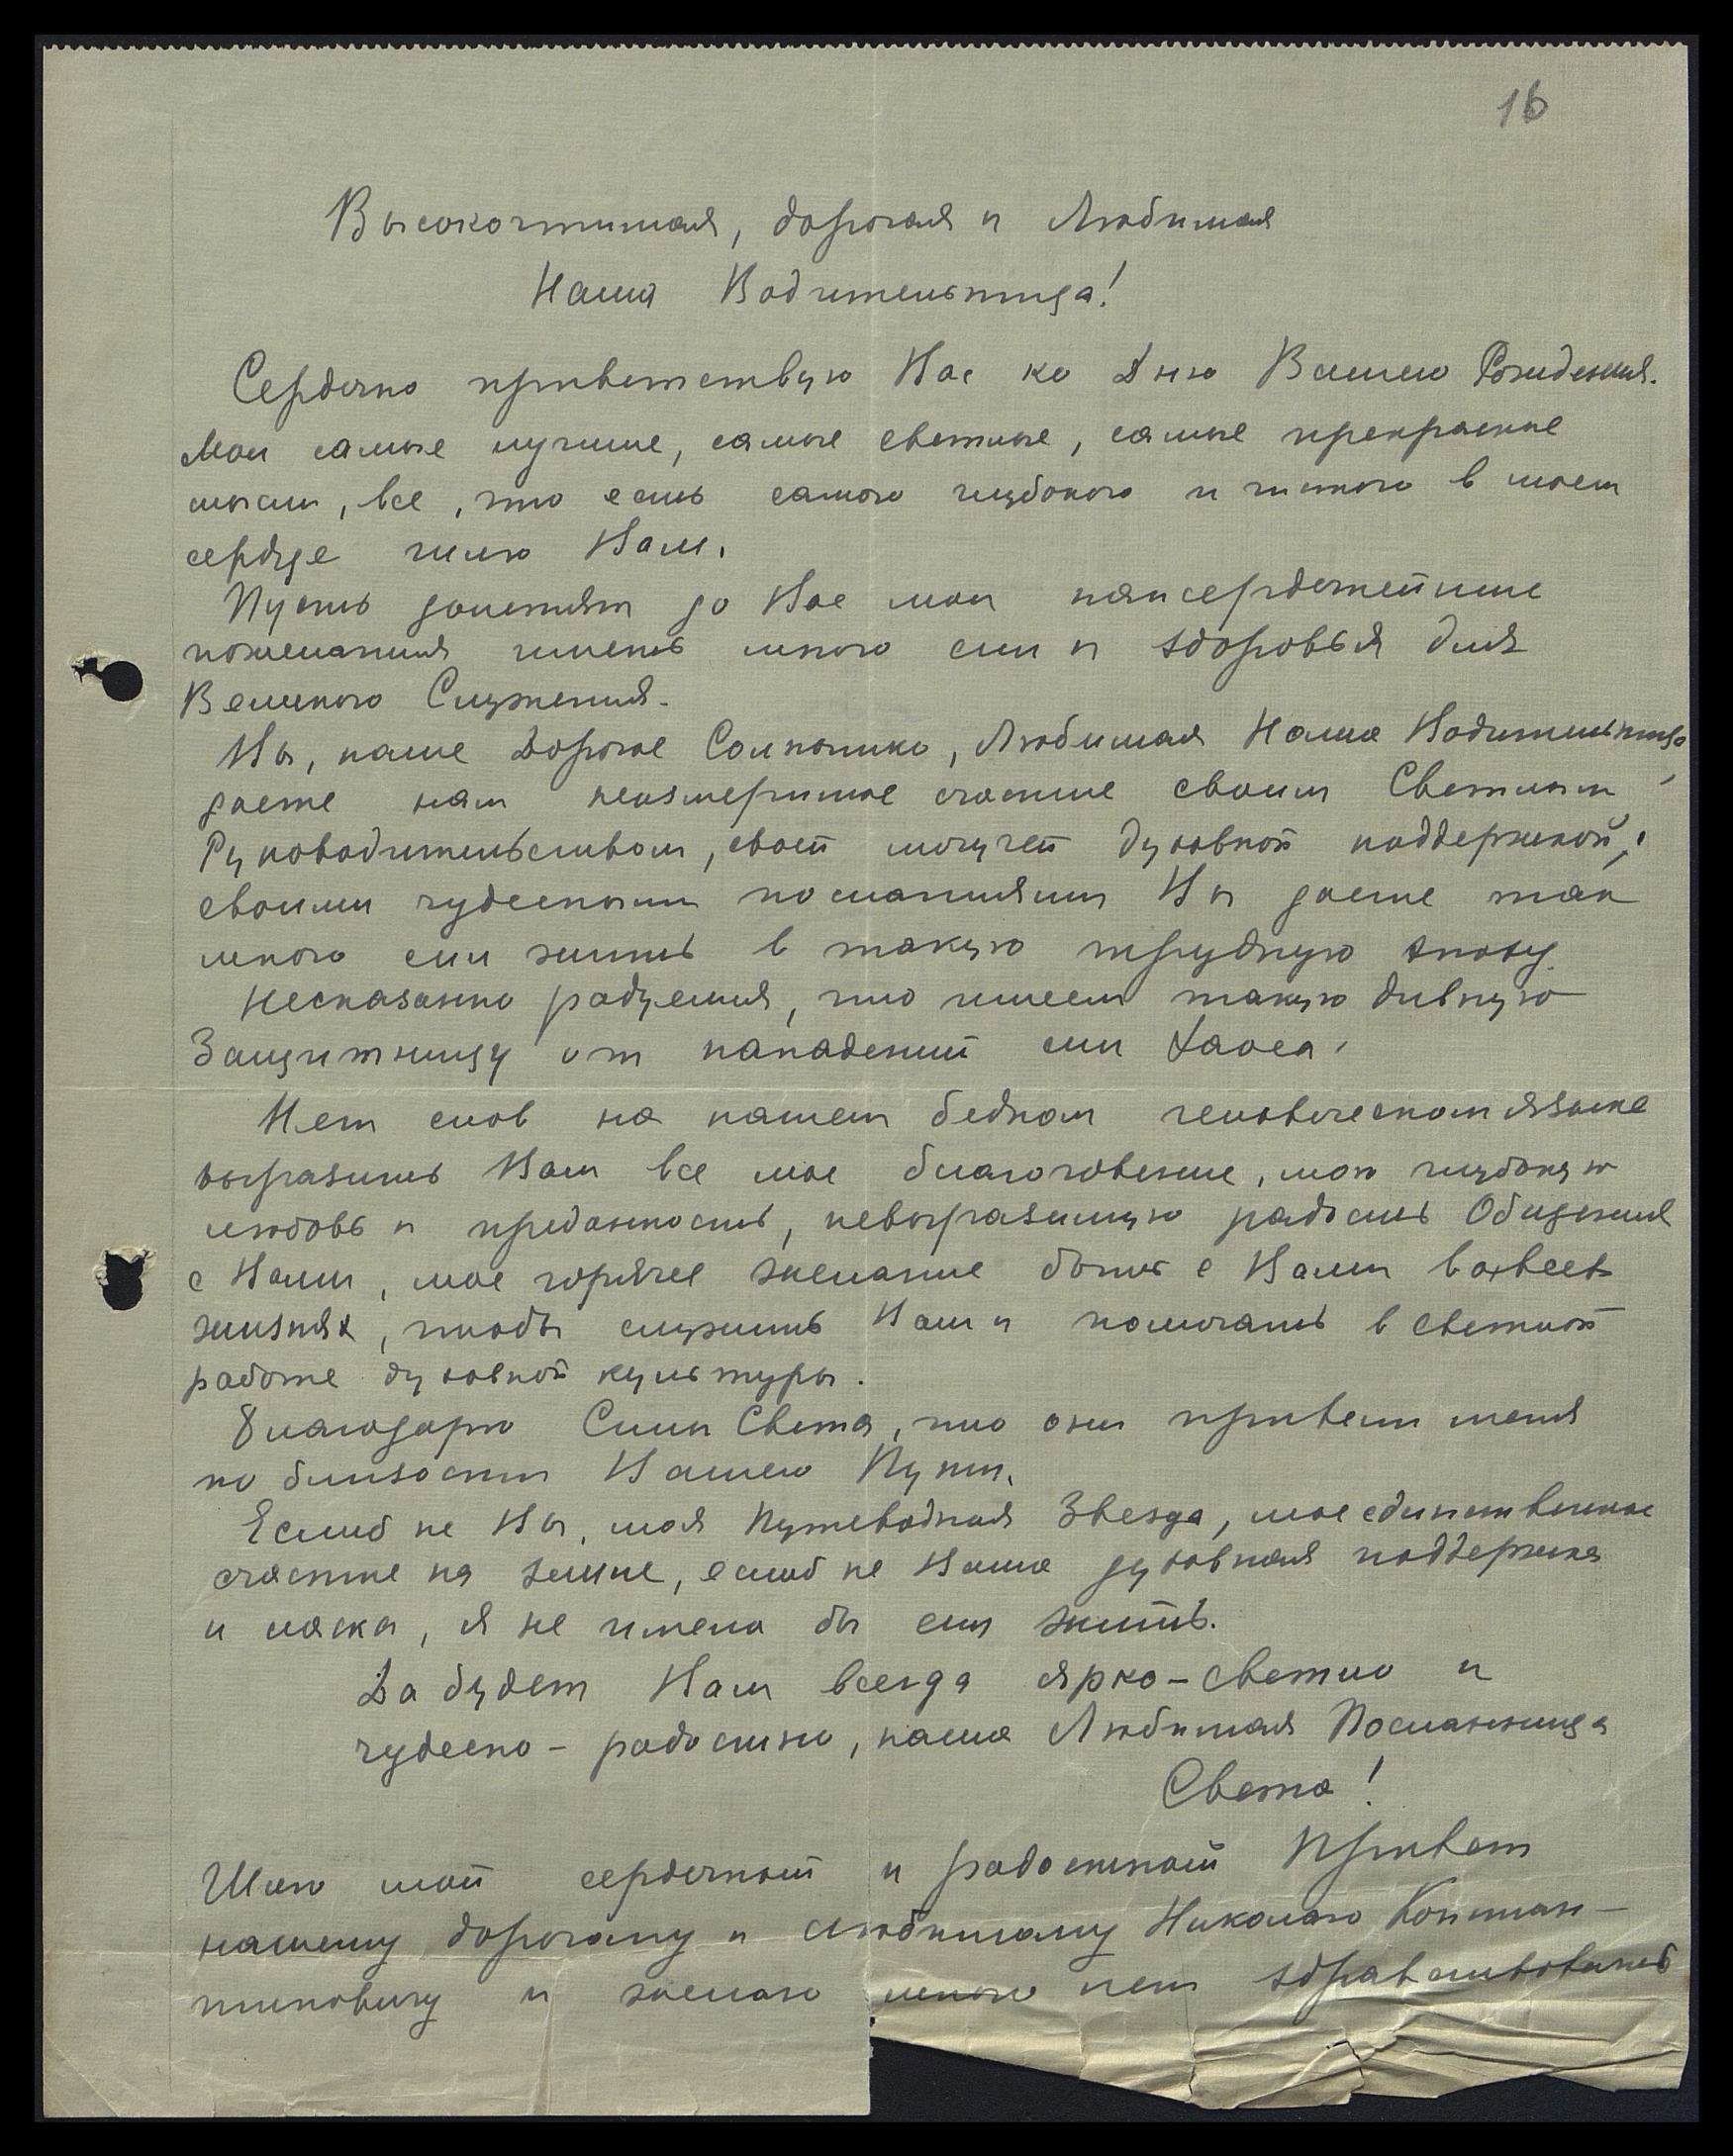 16
Высокочтимая, дорогая и Любимая
Наша Водительница!
Сердечно приветствую Вас ко Дню Вашего Рождения.
Мои самые лучшие, самые светлые, самые прекрасные
мысли, все, что есть самого глубокого и чистого в моем
сердце шлю Вам.
Пусть долетят до Вас мои наисердечнейшие
пожелания иметь много сил и здоровья для
Великого Служения.
Вы, наше Дорогое Солнышко, Любимая Наша Водительница,
даете нам неизмеримое счастие своим Светлым
Руководительством, своей могучей духовной поддержкой;
своими чудесными посланиями Вы даете так
много сил жить в такую трудную эпоху.
Несказанно радуемся, что имеем такую дивную
Защитницу от нападений сил Хаоса.
Нет слов на нашем бедном человеческом языке
выразить Вам все мое благоговение, мою глубокую
любовь и преданность, невыразимую радость Общения
с Вами, мое горячее желание быть с Вами во всех
жизнях, чтобы служить Вам и помогать в светлой
работе духовной культуры.
Благодарю Силы Света, что они привели меня
по близости Вашего Пути.
Еслиб не Вы, моя Путеводная Звезда, мое единственное
счастие на земле, еслиб не Ваша духовная поддержка
и ласка, я не имела бы сил жить.
Да будет Вам всегда ярко-светло и
чудесно-радостно, наша Любимая Посланница
Света!
Шлю мой сердечный и радостный Привет
нашему дорогому и Любимому Николаю Констан-
тиновичу и желаю много лет здравствовать